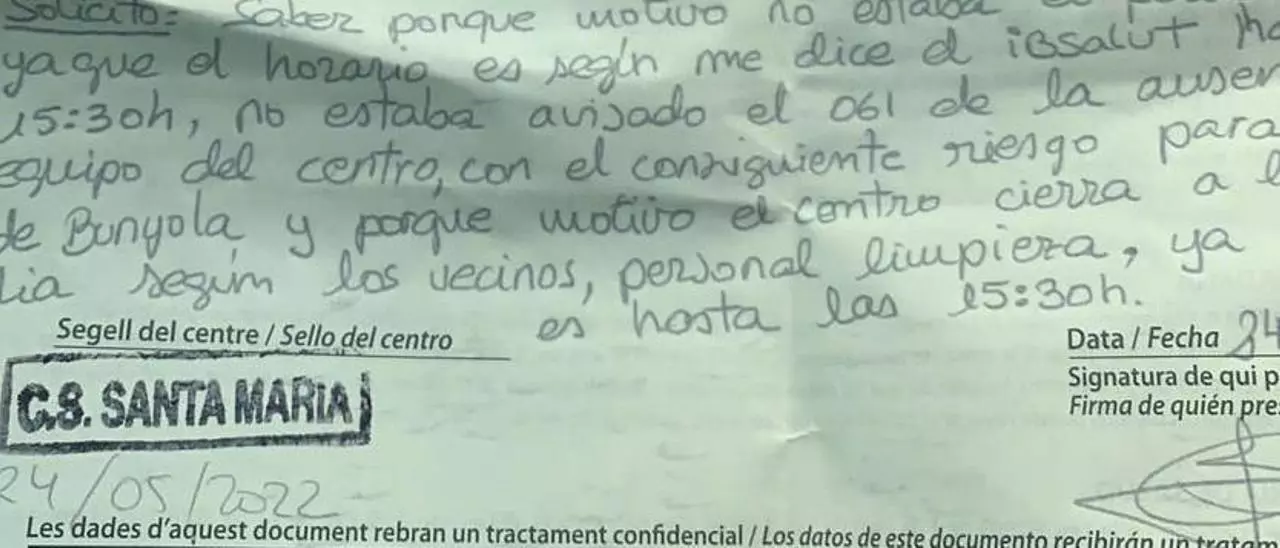 Solicito: Saber porque motivo no estaba el
yaque el horario es según me dice el iBsalut
15:30h, no estaba avisado el 061 de la ausen
equipo del centro, con el consiguiente riesgo para
de Bunyola y porque motivo el centro cierra a
según los vecinos, personal limpieza, ya
es hasta las 15:30h.
Segell del centre / Sello del centro
Data / Fecha 24
C.S. SANTA MARIA
Signatura de qui p
Firma de quién pre
24/05/2022
Les dades d'aquest document rebran un tractament confidencial / Los datos de este documento recibirán un tratam